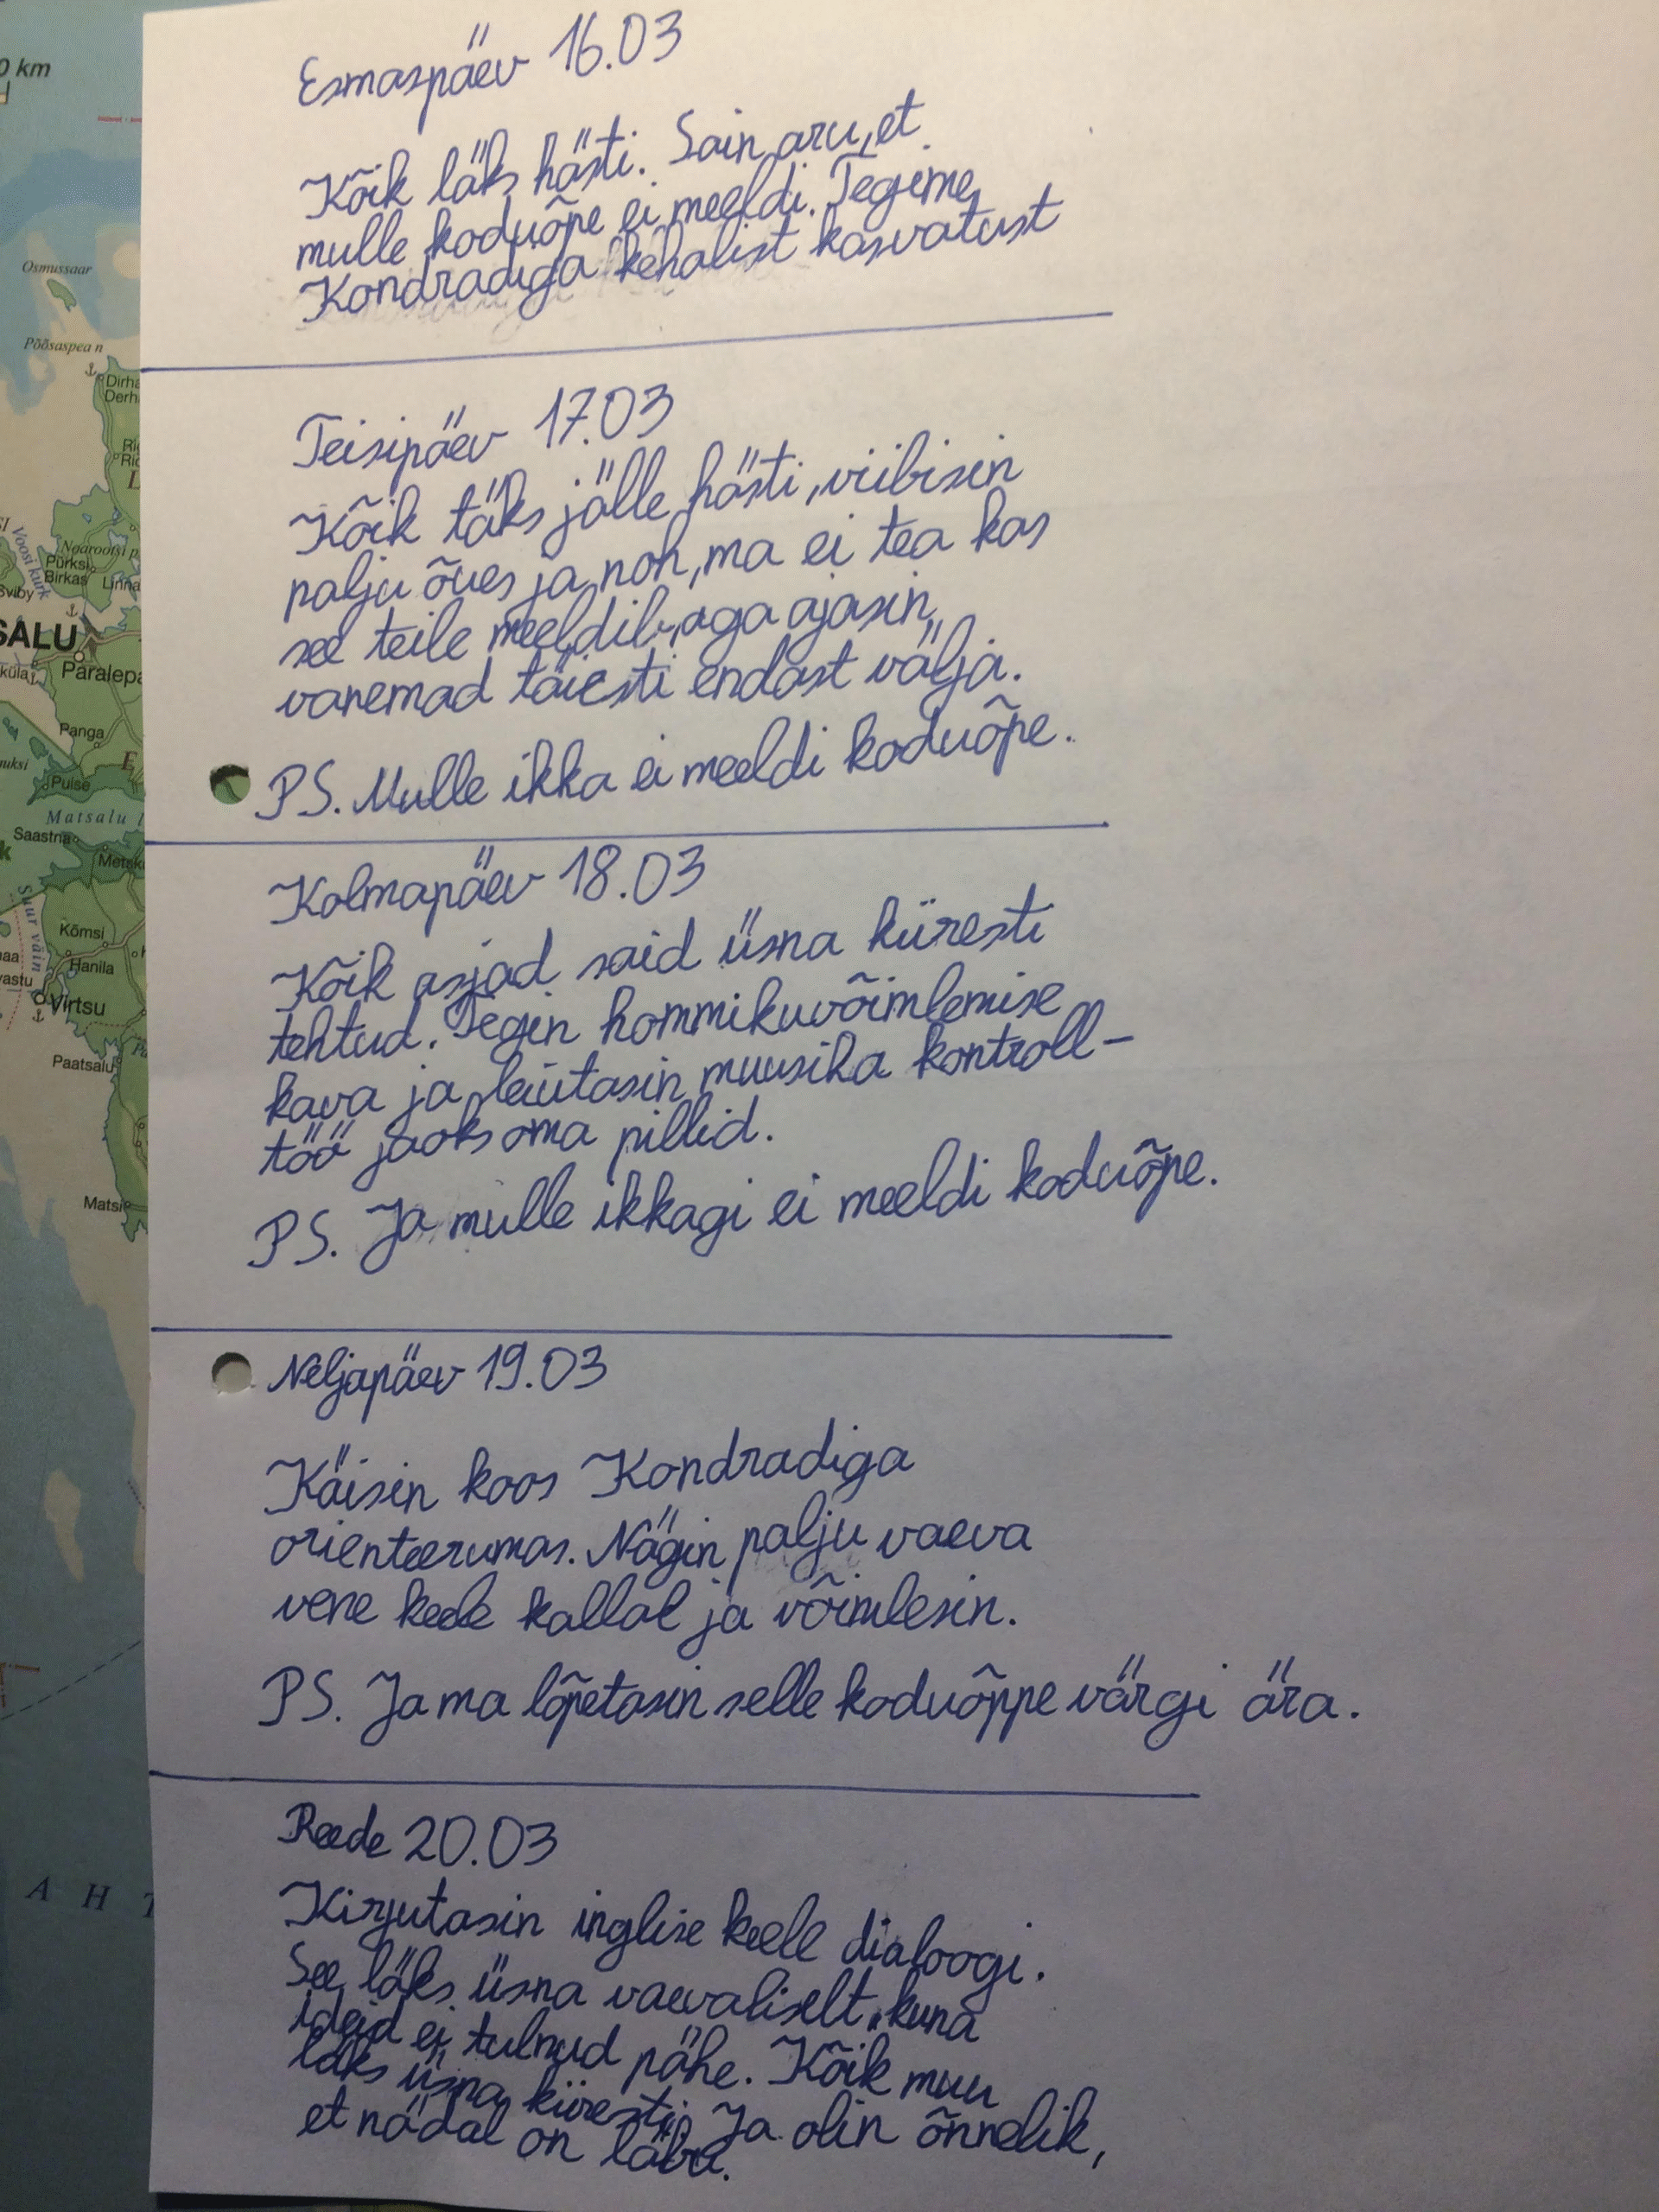 0 km
Osmussaar
Põõsaspea n
Dirha
Derh
Ri
Ric
L
Voosi kurk
Noarootsi p
Pürksi
Birkas
Linna
Sviby
SALU
küla
Paralepa
Panga
E
uksi
Puise
Matsalu l
Saastna
k
Metsk
Suur väin
Kõmsi
Hanila
vastu
Virtsu
Paatsalu
Matsi
A H T
Esmaspäev 16.03
Kõik läks hästi. Sain aru, et
mulle koduõpe ei meeldi. Tegime
Kondradiga kehalist kasvatust
Teisipäev 17.03
Kõik täks jälle hästi, viibisin
palju õues ja noh, ma ei tea kas
see teile meeldib, aga ajasin
vanemad täiesti endast välja.
PS. Mulle ikka ei meeldi koduõpe.
Kolmapäev 18.03
Kõik asjad said üsna kiiresti
tehtud. Tegin hommikuvõimlemise
kava ja leiutasin muusika kontroll-
töö jaoks oma pillid.
PS. Ja mulle ikkagi ei meeldi koduõpe.
Neljapäev 19.03
Käisin koos Kondradiga
orienteerumas. Nägin palju vaeva
vene keele kallal ja võimlesin.
PS. Ja ma lõpetasin selle koduõppe värgi ära.
Reede 20.03
Kirjutasin inglise keele dialoogi.
See läks üsna vaevaliselt, kuna
ideid ei tulnud pähe. Kõik muu
läks üsna kiiresti. Ja olin õnnelik,
et nädal on läbi.